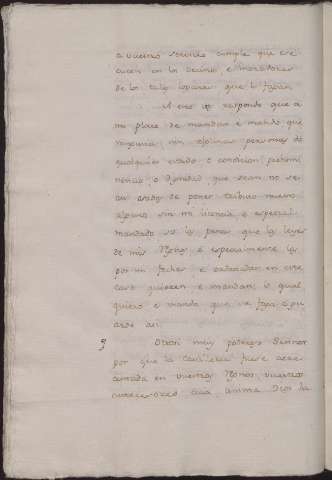 a vuestro servicio cumple que exe
cucen en los vecinos e moradores
de los tales logares que lo fagan
A esto vos respondo que a
mi place de mandar e mando que
ninguna nin algunas personas de
qualquier estado o condicion preemi
nencia o dignidad que sean no se
an osados de poner tributo nuevo
alguno sin mi licencia e especial
mandado so las penas que las leyes
de mis Regnos e especialmente las
por mi fechas e ordenadas en este
caso quieren e mandan, lo qual
quiero e mando que se faga e gu
arde asi.
9 Otrosi muy poderoso Sennor
por que la Cavalleria fuese acre
centada en vuestros Regnos vuestros
antecesores cuya anima Dios ha